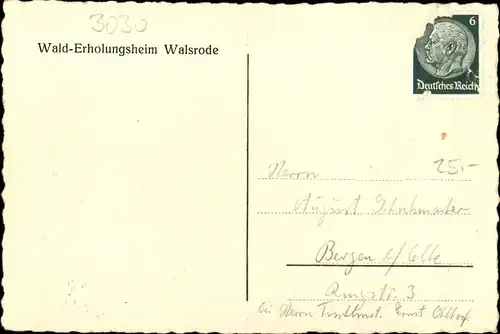 3030
Wald-Erholungsheim Walsrode
6
Deutsches Reich
25,-
Herrn
August
Bergen b/ Celle
3
bei Herrn Ernst